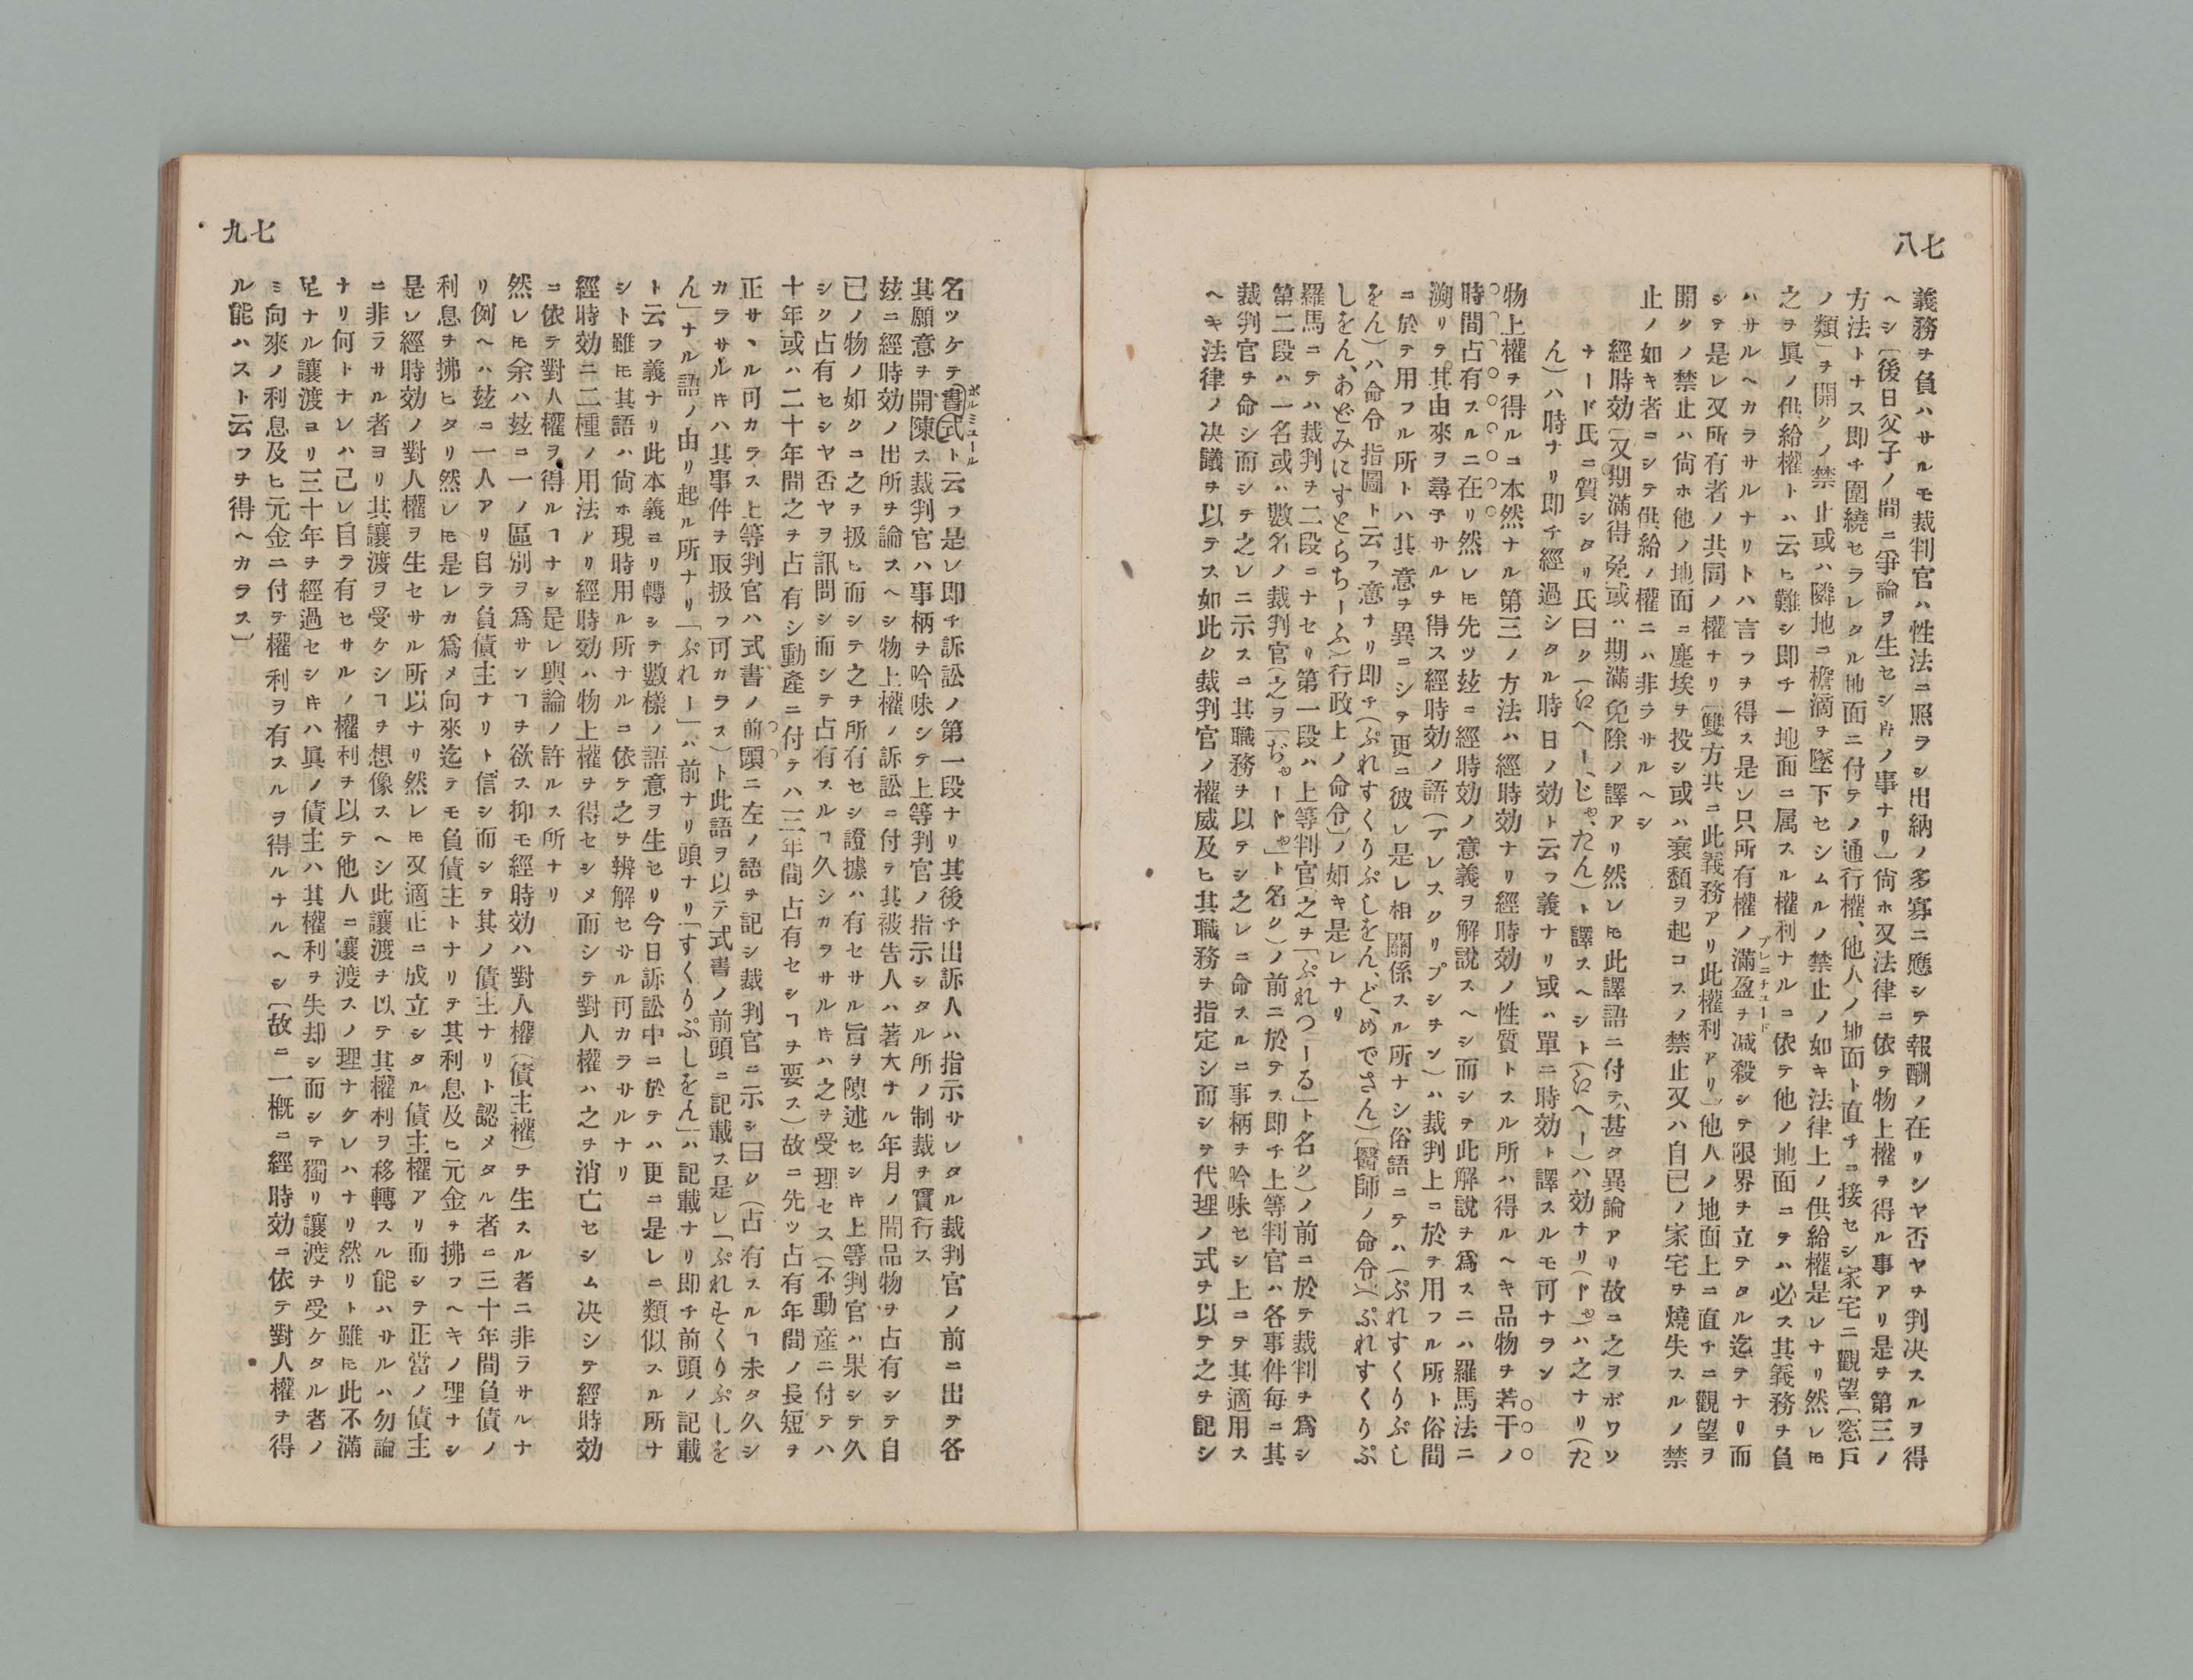 八七
義務ヲ負ハサルモ裁判官ハ性法ニ照ラシ出納ノ多寡ニ應シテ報酬ノ在リシヤ否ヤヲ判决スルヲ得
ヘシ〔後日父子ノ間ニ爭論ヲ生セシ𪜈ノ事ナリ〕尙ホ又法律ニ依テ物上權ヲ得ル事アリ是ヲ第三ノ
方法トナス即チ圍繞セラレタル地面ニ付テノ通行權、他人ノ地面ト直チニ接セシ家宅ニ觀望〔窓戸
ノ類〕ヲ開クノ禁止或ハ隣地ニ檐滴ヲ墜下セシムルノ禁止ノ如キ法律上ノ供給權是レナリ然レ𪜈
之ヲ眞ノ供給權トハ云ヒ難シ即チ一地面ニ属スル權利ナルニ依テ他ノ地面ニテハ必ス其義務ヲ負
ハサルヘカラサルナリトハ言フヲ得ス是レ只所有權ノ滿盈ヲ減殺シテ限界ヲ立テタル迄テナリ而
プレニチユード
シテ是レ又所有者ノ共同ノ權ナリ〔雙方共ニ此義務アリ此權利アリ〕他人ノ地面上ニ直チニ觀望ヲ
開クノ禁止ハ尙ホ他ノ地面ニ塵埃ヲ投シ或ハ衰頽ヲ起コスノ禁止又ハ自己ノ家宅ヲ燒失スルノ禁
止ノ如キ者ニシテ供給ノ權ニハ非ラサルヘシ
經時効〔又期滿得免或ハ期滿免除ノ譯アリ然レ𪜈此譯語ニ付テ、甚タ異論アリ故ニ之ヲボワソ
ナード氏ニ質シタリ氏曰ク(ゑへー、じゃ、たん)ト譯スヘシト(ゑへー)ハ効ナリ(ドゃ)ハ之ナリ(た
ん)ハ時ナリ即チ經過シタル時日ノ効ト云フ義ナリ或ハ單ニ時効ト譯スルモ可ナラン
物上權ヲ得ルニ本然ナル第三ノ方法ハ經時効ナリ經時効ノ性質トスル所ハ得ルヘキ品物ヲ若干ノ
時間占有スルニ在リ然レ𪜈先ツ玆ニ經時効ノ意義ヲ解說スヘシ而シテ此解說ヲ爲スニハ羅馬法ニ
溯リテ其由來ヲ尋子サルヲ得ス經時効ノ語(プレスクリプシヲン)ハ裁判上ニ於テ用フル所ト俗間
ニ於テ用フル所トハ其意ヲ異ニシテ更ニ彼レ是レ相關係スル所ナシ俗語ニテハ(ぷれすくりぷし
をん)ハ命令指圖ト云フ意ナリ即チ(ぷれすくりぷしをん、ど、めでさん)〔醫師ノ命令〕(ぷれすくりぷ
しをん、あどみにすとらちーふ)〔行政上ノ命令〕ノ如キ是レナリ
羅馬ニテハ裁判ヲ二段ニナセリ第一段ハ上等判官(之ヲ「ぷれつーる」ト名ク)ノ前ニ於テ裁判ヲ爲シ
第二段ハ一名或ハ數名ノ裁判官(之ヲ「ぢゃードゃ」ト名ク)ノ前ニ於テス即チ上等判官ハ各事件每ニ其
裁判官ヲ命シ而シテ之レニ示スニ其職務ヲ以テシ之レニ命スルニ事柄ヲ吟味セシ上ニテ其適用ス
ヘキ法律ノ决議ヲ以テス如此ク裁判官ノ權威及ヒ其職務ヲ指定シ而シテ代理ノ式ヲ以テ之ヲ記シ
九七
名ツケテ書式ト云フ是レ即チ訴訟ノ第一段ナリ其後チ出訴人ハ指示サレタル裁判官ノ前ニ出テ各
ポルミユール
其願意ヲ開陳ス裁判官ハ事柄ヲ吟味シテ上等判官ノ指示シタル所ノ制裁ヲ實行ス
玆ニ經時効ノ出所ヲ論スヘシ物上權ノ訴訟ニ付テ其被告人ハ著大ナル年月ノ間品物ヲ占有シテ自
己ノ物ノ如クニ之ヲ扱ヒ而シテ之ヲ所有セシ證據ハ有セサル旨ヲ陳述セシ𪜈上等判官ハ果シテ久
シク占有セシヤ否ヤヲ訊問シ而シテ占有スルヿ久シカラサル𪜈ハ之ヲ受理セス(不動產ニ付テハ
十年或ハ二十年間之ヲ占有シ動產ニ付テハ三年間占有セシヿヲ要ス)故ニ先ツ占有年間ノ長短ヲ
正サヽル可カラス上等判官ハ式書ノ前頭ニ左ノ語ヲ記シ裁判官ニ示シ曰ク(占有スルヿ未タ久シ
カラサル𪜈ハ其事件ヲ取扱フ可カラス)ト此語ヲ以テ式書ノ前頭ニ記載ス是レ「ぷれすくりぷしを
ん」ナル語ノ由リ起ル所ナリ「ぷれー」ハ前ナリ頭ナリ「すくりぷしをん」ハ記載ナリ即チ前頭ノ記載
ト云フ義ナリ此本義ヨリ轉シテ數樣ノ語意ヲ生セリ今日訴訟中ニ於テハ更ニ是レニ類似スル所ナ
シト雖𪜈其語ハ尙ホ現時用ル所ナルニ依テ之ヲ辨解セサル可カラサルナリ
經時効ニ二種ノ用法アリ經時効ハ物上權ヲ得セシメ而シテ對人權ハ之ヲ消亡セシム决シテ經時効
ニ依テ對人權ヲ得ルヿナシ是レ輿論ノ許ルス所ナリ
然レ𪜈余ハ玆ニ一ノ區別ヲ爲サンヿヲ欲ス抑モ經時効ハ對人權(債主權)ヲ生スル者ニ非ラサルナ
リ例ヘハ玆ニ一人アリ自ラ負債主ナリト信シ而シテ其ノ債主ナリト認メタル者ニ三十年間負債ノ
利息ヲ拂ヒタリ然レ𪜈是レカ爲メ向來迄テモ負債主トナリテ其利息及ヒ元金ヲ拂フヘキノ理ナシ
是レ經時効ノ對人權ヲ生セサル所以ナリ然レ𪜈又適正ニ成立シタル債主權アリ而シテ正當ノ債主
ニ非ラサル者ヨリ其讓渡ヲ受ケシヿヲ想像スヘシ此讓渡ヲ以テ其權利ヲ移轉スル能ハサルハ勿論
ナリ何トナレハ己レ自ラ有セサルノ權利ヲ以テ他人ニ讓渡スノ理ナケレハナリ然リト雖𪜈此不滿
足ナル讓渡ヨリ三十年ヲ經過セシ𪜈ハ眞ノ債主ハ其權利ヲ失却シ而シテ獨リ讓渡ヲ受ケタル者ノ
ミ向來ノ利息及ヒ元金ニ付テ權利ヲ有スルヲ得ルナルヘシ〔故ニ一概ニ經時効ニ依テ對人權ヲ得
ル能ハスト云フヲ得ヘカラス〕